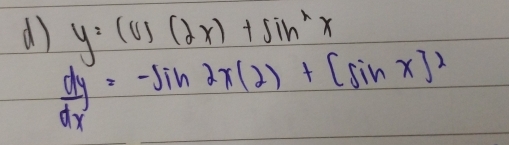 d) y = cos (2x) + sin² x
dy/dx = -sin 2x(2) + [sin x]²